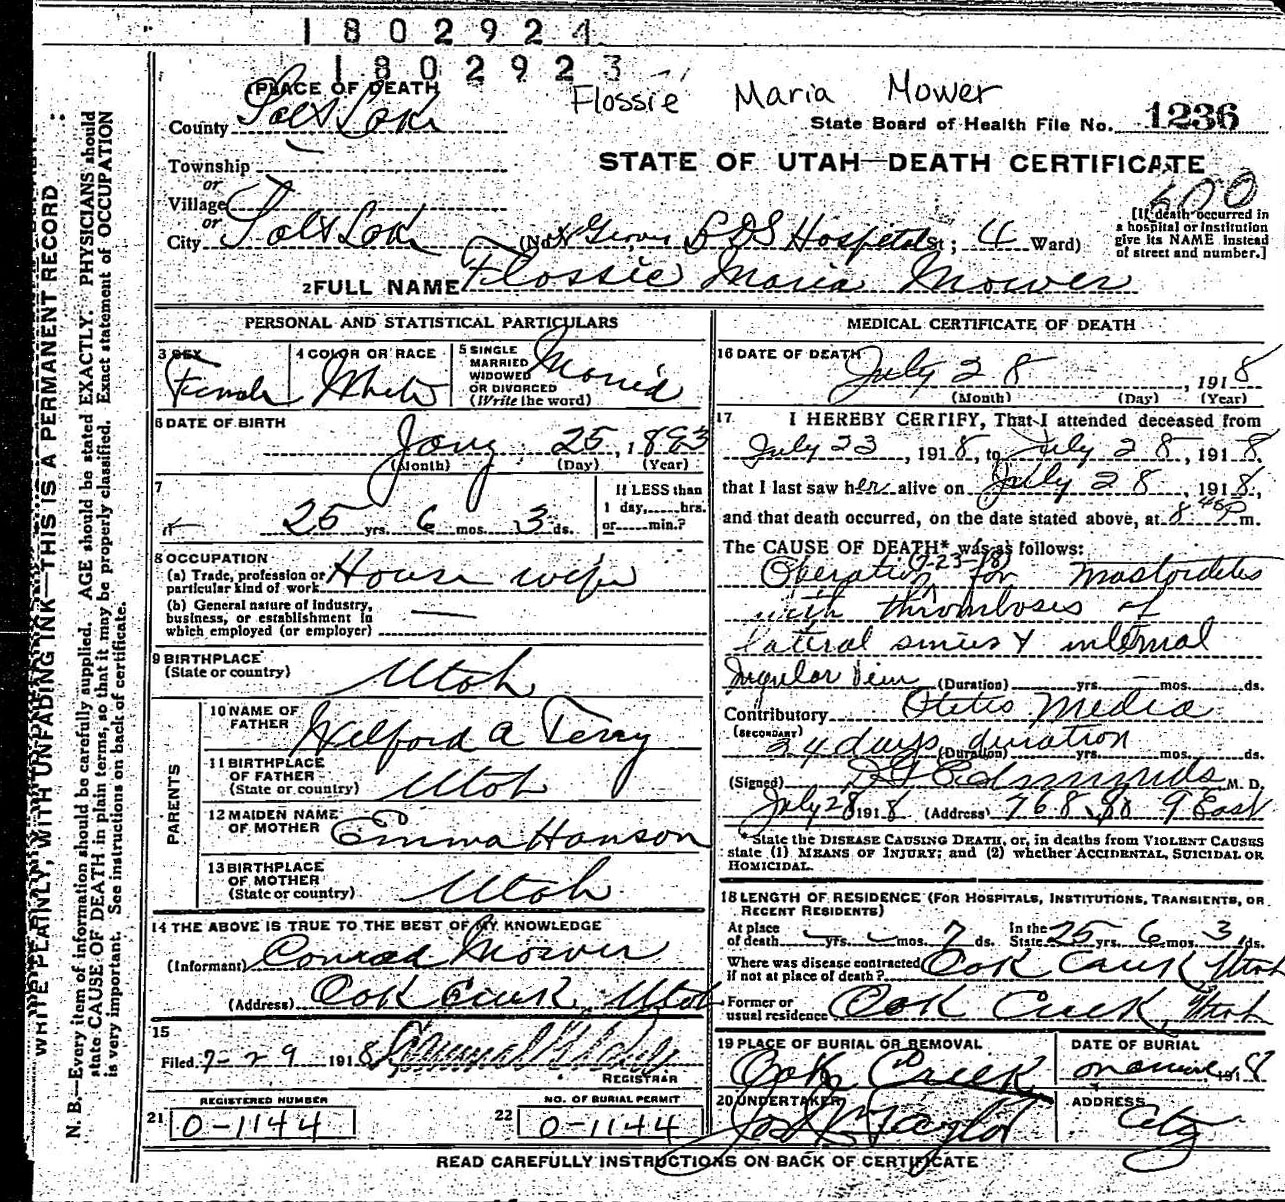 1802924
1802923
Flossie Maria Mower
PLACE OF DEATH
County Salt Lake
State Board of Health File No. 1236
Township
or
Village
or
STATE OF UTAH—DEATH CERTIFICATE
600
City Salt Lake (No. Groves L D S Hospital St; 4 Ward)
[If death occurred in
a hospital or institution
give its NAME instead
of street and number.]
2 FULL NAME Flossie Maria Mower
PERSONAL AND STATISTICAL PARTICULARS
3 SEX
Female
4 COLOR OR RACE
White
5 SINGLE
MARRIED
WIDOWED
OR DIVORCED
(Write the word)
Married
6 DATE OF BIRTH
Jany 25, 1893
(Month) (Day) (Year)
7
25 yrs. 6 mos. 3 ds.
If LESS than
1 day,......hrs.
or......min.?
8 OCCUPATION
(a) Trade, profession or
particular kind of work House wife
(b) General nature of industry,
business, or establishment in
which employed (or employer)
9 BIRTHPLACE
(State or country)
Utah
PARENTS
10 NAME OF
FATHER
Wilford A Terry
11 BIRTHPLACE
OF FATHER
(State or country)
Utah
12 MAIDEN NAME
OF MOTHER
Emma Hanson
13 BIRTHPLACE
OF MOTHER
(State or country)
Utah
14 THE ABOVE IS TRUE TO THE BEST OF MY KNOWLEDGE
(Informant) Conrad Mower
(Address) Oak Creek, Utah
15
Filed 7-29 1918
REGISTRAR
REGISTERED NUMBER
21 0-1144
NO. OF BURIAL PERMIT
22 0-1144
MEDICAL CERTIFICATE OF DEATH
16 DATE OF DEATH
July 28, 1918
(Month) (Day) (Year)
17 I HEREBY CERTIFY, That I attended deceased from
July 23, 1918, to July 28, 1918.
that I last saw her alive on July 28, 1918,
and that death occurred, on the date stated above, at 8 45 P m.
The CAUSE OF DEATH* was as follows:
Operation (7-23-18) for mastoidetes
with thrombosis of
lateral sinus & internal
Jugular Vein (Duration) yrs. mos. ds.
Contributory Otetis Media
(SECONDARY)
24 days duration (Duration) yrs. mos. ds.
(Signed) Edmunds M. D.
July 28 1918 (Address) 768 So 9 East
*State the DISEASE CAUSING DEATH, or, in deaths from VIOLENT CAUSES
state (1) MEANS OF INJURY; and (2) whether ACCIDENTAL, SUICIDAL OR
HOMICIDAL.
18 LENGTH OF RESIDENCE (FOR HOSPITALS, INSTITUTIONS, TRANSIENTS, OR
RECENT RESIDENTS)
At place
of death yrs. mos. 7 ds.
In the
State 25 yrs. 6 mos. 3 ds.
Where was disease contracted
if not at place of death? Oak Creek Utah
Former or
usual residence Oak Creek, Utah
19 PLACE OF BURIAL OR REMOVAL
Oak Creek
DATE OF BURIAL
1918
20 UNDERTAKER
Jos Wm Taylor
ADDRESS
City
READ CAREFULLY INSTRUCTIONS ON BACK OF CERTIFICATE
WRITE PLAINLY, WITH UNFADING INK—THIS IS A PERMANENT RECORD
N. B.—Every item of information should be carefully supplied. AGE should be stated EXACTLY. PHYSICIANS should
state CAUSE OF DEATH in plain terms, so that it may be properly classified. Exact statement of OCCUPATION
is very important. See instructions on back of certificate.